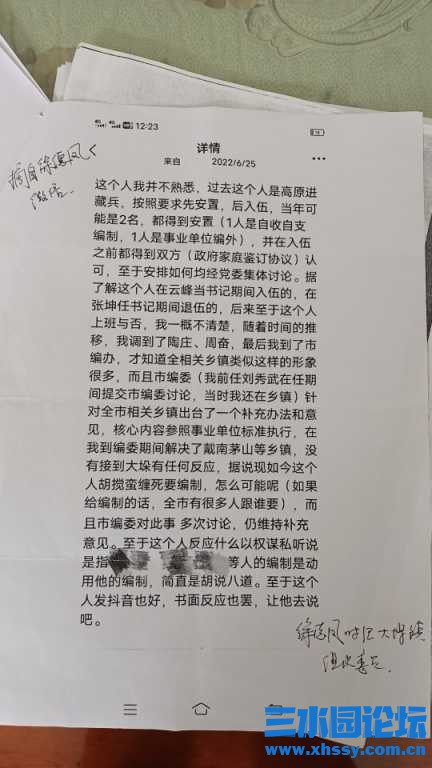 12:23
详情
来自 2022/6/25
摘自徐德凤
微信.
这个人我并不熟悉，过去这个人是高原进
藏兵，按照要求先安置，后入伍，当年可
能是2名，都得到安置（1人是自收自支
编制，1人是事业单位编外），并在入伍
之前都得到双方（政府家庭鉴订协议）认
可，至于安排如何均经党委集体讨论。据
了解这个人在云峰当书记期间入伍的，在
张坤任书记期间退伍的，后来至于这个人
上班与否，我一概不清楚，随着时间的推
移，我调到了陶庄、周奋，最后我到了市
编办，才知道全相关乡镇类似这样的形象
很多，而且市编委（我前任刘秀武在任期
间提交市编委讨论，当时我还在乡镇）针
对全市相关乡镇出台了一个补充办法和意
见，核心内容参照事业单位标准执行，在
我到编委期间解决了戴南茅山等乡镇，没
有接到大垛有任何反应，据说现如今这个
人胡搅蛮缠死要编制，怎么可能呢（如果
给编制的话，全市有很多人跟谁要），而
且市编委对此事 多次讨论，仍维持补充
意见。至于这个人反应什么以权谋私听说
是指 等人的编制是动
用他的编制，简直是胡说八道。至于这个
人发抖音也好，书面反应也罢，让他去说
吧。
徐德凤时任大垛镇
三水园论坛
www.xhssy.com.cn